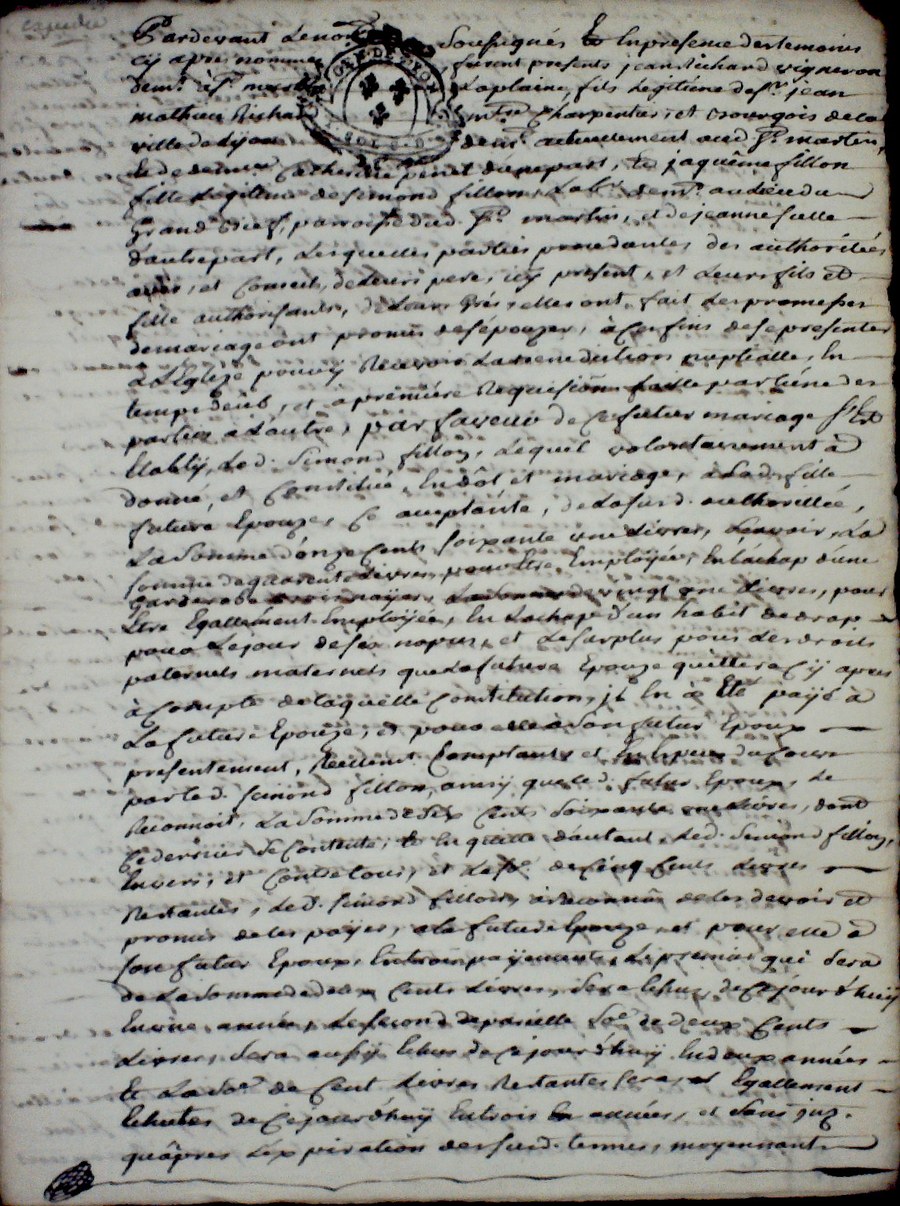 Pardevant Le no soussignés Et En presence des temoins
cy apres nommés furent presents jean Richard vigneron
dem.t à S.t martin Laplaine, fils Legitime de f.. jean
mathieu Richard m.tre Charpentier, et Bourgeois de la
ville de dijon dem.t actuellement aud. S.t martin,
Et de deffunte Catherine penet d'unepart, Et jaquème fillon
fille Legitime de simond fillon, Lab.r dem.t au Lieu du
Grand Brief, parroisse dud. S.t martin, et de jeanne
d'autrepart, Lesquelles parties procedantes des authorités
avis, et Conseils de Leurs pere, icy present, et Leurs fils et
fille authorisants, de Leurs grés elles ont fait Les promesses
de mariage ont promis de s'épouzer, à Ces fins de se presenter
a L'Eglize pour y Recevoir La Benediction nuptialle, En
temps deüb, et a premiére Requisition faitte par L'une des
parties a L'autre, par faveur de Ce futur mariage Et
Etably, Led. Simond fillon, Lequel volontairement à
donné, et Constitué, En dot et mariage, a Lad. fille
future Epouze, Ce acceptante, de La susd. authoritée,
La Somme d'onze Cents soixante une Livres, sçavoir, La
somme de quarente Livres, pour Etre Employée, En L'achap d'une
Garderobe La somme de vingt une Livres, pour
Etre Egallement Employée, En L'achap d'un habit de drap
pour Le jour de ses nopces, et Le surplus pour Les droits
paternels maternels que La future Epouze quittera Cy apres
à Compte de Laquelle Constitution, jl En a Eté payé à
La future Epouze, et pour elle à son futur Epoux
presentement, Réellement Comptants et En Especes du Cours
par Led. simond fillon, ainsy que Led. futur Epoux, Le
Reconnoit, La Somme de Six Cents Soixante une Livres, dont
Ce dernier Se Contente, Et En quitte d'autant, Led. Simond fillon,
Envers, et Contre tous, et La s.e de Cinq Cents Livres
Restantes, Led. simond fillon, à reconnu de Les devoir et
promis de Les payer, a La future Epouze, et pour elle à
son futur Epoux, En trois payements, Le premier qui sera
de La somme de deux Cents Livres, sera Echus, de Ce jourd'huy
En une année, Le second de pareille So.e de deux Cents
Livres, sera aussy Echus de Ce jourd'huy En deux années
Et La So.e de Cent Livres Restantes sera, Egallement
Echutes de Ce jourd'huy En trois années, et Sans
qu'âpres L'expiration des susd. termes, moyennant